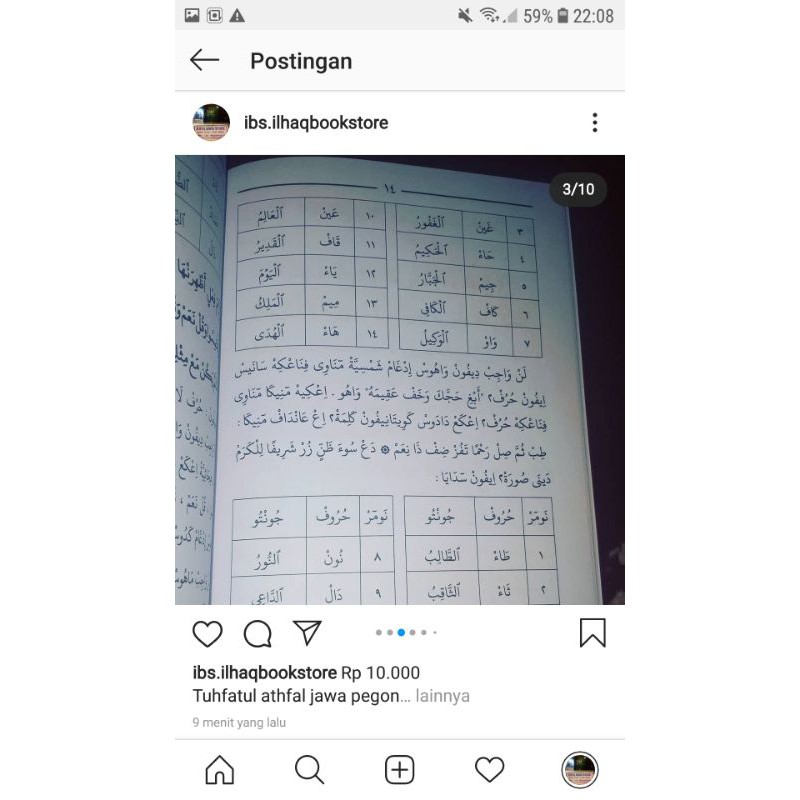 59% 22:08
Postingan
ibs.ilhaqbookstore
3/10
١٤
٣ غَيْنْ اَلْغَفُوْرُ ١٠ عَيْنْ اَلْعَالِمُ
٤ حَاءْ اَلْحَكِيْمُ ١١ قَافْ اَلْقَدِيْرُ
٥ جِيْمْ اَلْجَبَّارُ ١٢ يَاءْ اَلْيَوْمَ
٦ كَافْ اَلْكَافِى ١٣ مِيْمْ اَلْمَلِكُ
٧ وَاوْ اَلْوَكِيْلُ ١٤ هَاءْ اَلْهُدَى
لَنْ وَاجِبْ دِيفُونْ وَاهُوسْ اِدْغَامْ شَمْسِيَّةْ مَنَاوِى فِنَاعْكِهْ سَانَيْسْ
اِيفُونْ حُرُفْ٢ "أَبْغِ حَجَّكَ وَخَفْ عَقِيْمَهُ" وَاهُو . اِعْكِيهْ مَنِيكَا مَنَاوِى
فِنَاعْكِهْ حُرُفْ٢ اِعْكَعْ دَادَوْسْ كَوِيتَانِيفُونْ كَلِمَةْ٢ اِعْ عَانْدَافْ مَنِيكَا :
طِبْ ثُمَّ صِلْ رَحْمًا تَفُزْ ضِفْ ذَا نِعَمْ ۞ دَعْ سُوْءَ ظَنٍّ زُرْ شَرِيْفًا لِلْكَرَمْ
دَيْنَى صُورَةْ٢ اِيفُونْ سَدَايَا :
نَومَرْ حُرُوفْ جُونْتَو نَومَرْ حُرُوفْ جُونْتَو
١ طَاءْ اَلطَّالِبُ ٨ نُونْ اَلنُّوْرُ
٢ ثَاءْ اَلثَّاقِبُ ٩ دَالْ اَلدَّاعِى
ibs.ilhaqbookstore Rp 10.000
Tuhfatul athfal jawa pegon... lainnya
9 menit yang lalu